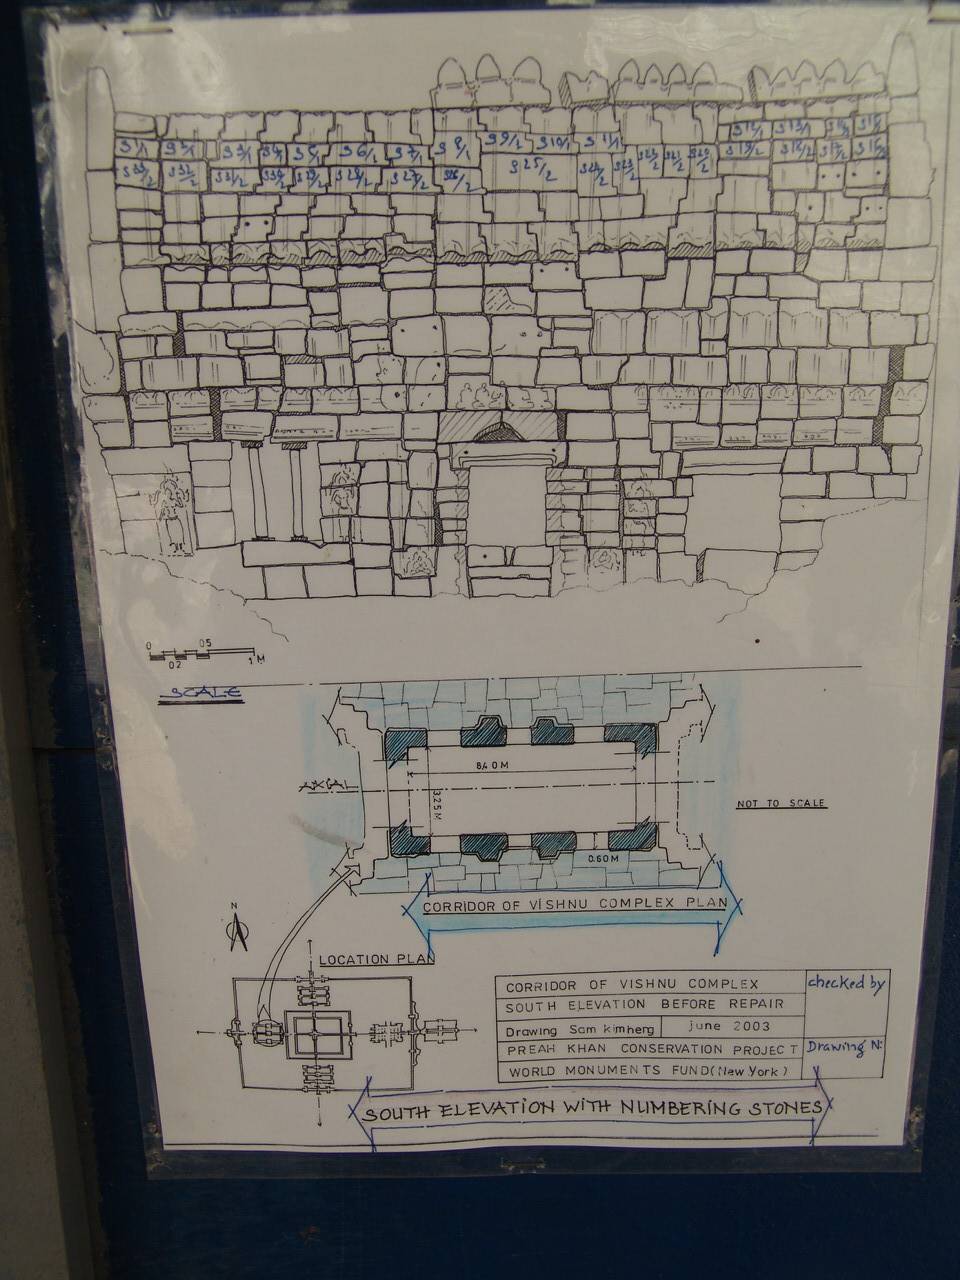 S1/1
S2/1
S3/1
S4/1
S5/1
S6/1
S7/1
S8/1
S9/1
S10/1
S11/1
S12/1
S13/1
S33/2
S32/2
S31/2
S30/2
S29/2
S28/2
S27/2
S26/2
S25/2
S24/2
S23/2
S22/2
0
05
02
1 M
SCALE
8.40 M
AXIAL
3.25 M
NOT TO SCALE
0.60 M
CORRIDOR OF VISHNU COMPLEX PLAN
N
LOCATION PLAN
CORRIDOR OF VISHNU COMPLEX
checked by
SOUTH ELEVATION BEFORE REPAIR
Drawing Sam kimherg
june 2003
PREAH KHAN CONSERVATION PROJECT
Drawing N:
WORLD MONUMENTS FUND (New York)
SOUTH ELEVATION WITH NUMBERING STONES